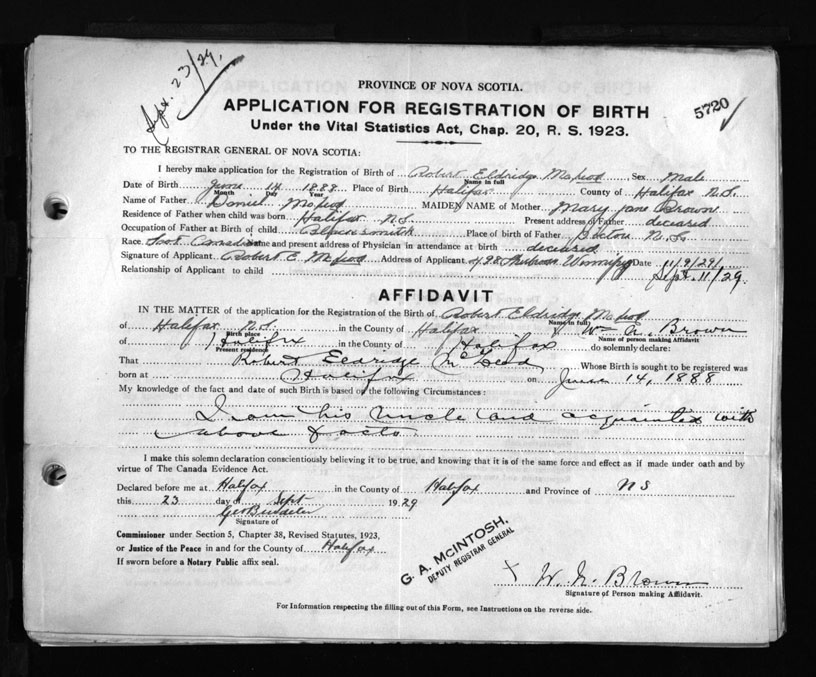 Sept. 23/29.
PROVINCE OF NOVA SCOTIA.
APPLICATION FOR REGISTRATION OF BIRTH
5720
Under the Vital Statistics Act, Chap. 20, R. S. 1923.
TO THE REGISTRAR GENERAL OF NOVA SCOTIA:
I hereby make application for the Registration of Birth of Robert Eldridge McLeod Sex Male
Name in full
Date of Birth June 14 1888 Place of Birth Halifax County of Halifax N.S.
Month Day Year
Name of Father Daniel McLeod MAIDEN NAME of Mother Mary Jane Brown
Residence of Father when child was born Halifax N.S. Present address of Father deceased
Occupation of Father at Birth of child Blacksmith Place of birth of Father Pictou N.S.
Race. Scot Canadian Name and present address of Physician in attendance at birth deceased
Signature of Applicant Robert E. McLeod Address of Applicant Winnipeg Date 11/9/29
Relationship of Applicant to child Sept. 11/29.
AFFIDAVIT
IN THE MATTER of the application for the Registration of the Birth of Robert Eldridge McLeod
Name in full
of Halifax N.S. in the County of Halifax Wm A. Brown
Birth place Name of person making Affidavit
of Halifax in the County of Halifax do solemnly declare:
Present residence
That Robert Eldridge McLeod Whose Birth is sought to be registered was
born at Halifax on June 14, 1888
My knowledge of the fact and date of such Birth is based on the following Circumstances:
I am his Uncle and acquainted with
above facts
I make this solemn declaration conscientiously believing it to be true, and knowing that it is of the same force and effect as if made under oath and by
virtue of The Canada Evidence Act.
Declared before me at Halifax in the County of Halifax and Province of N S
this 23 day of Sept 1929
Signature of
Commissioner under Section 5, Chapter 38, Revised Statutes, 1923,
or Justice of the Peace in and for the County of Halifax
If sworn before a Notary Public affix seal.
G. A. McINTOSH,
DEPUTY REGISTRAR GENERAL
X W. A. Brown
Signature of Person making Affidavit.
For Information respecting the filling out of this Form, see Instructions on the reverse side.